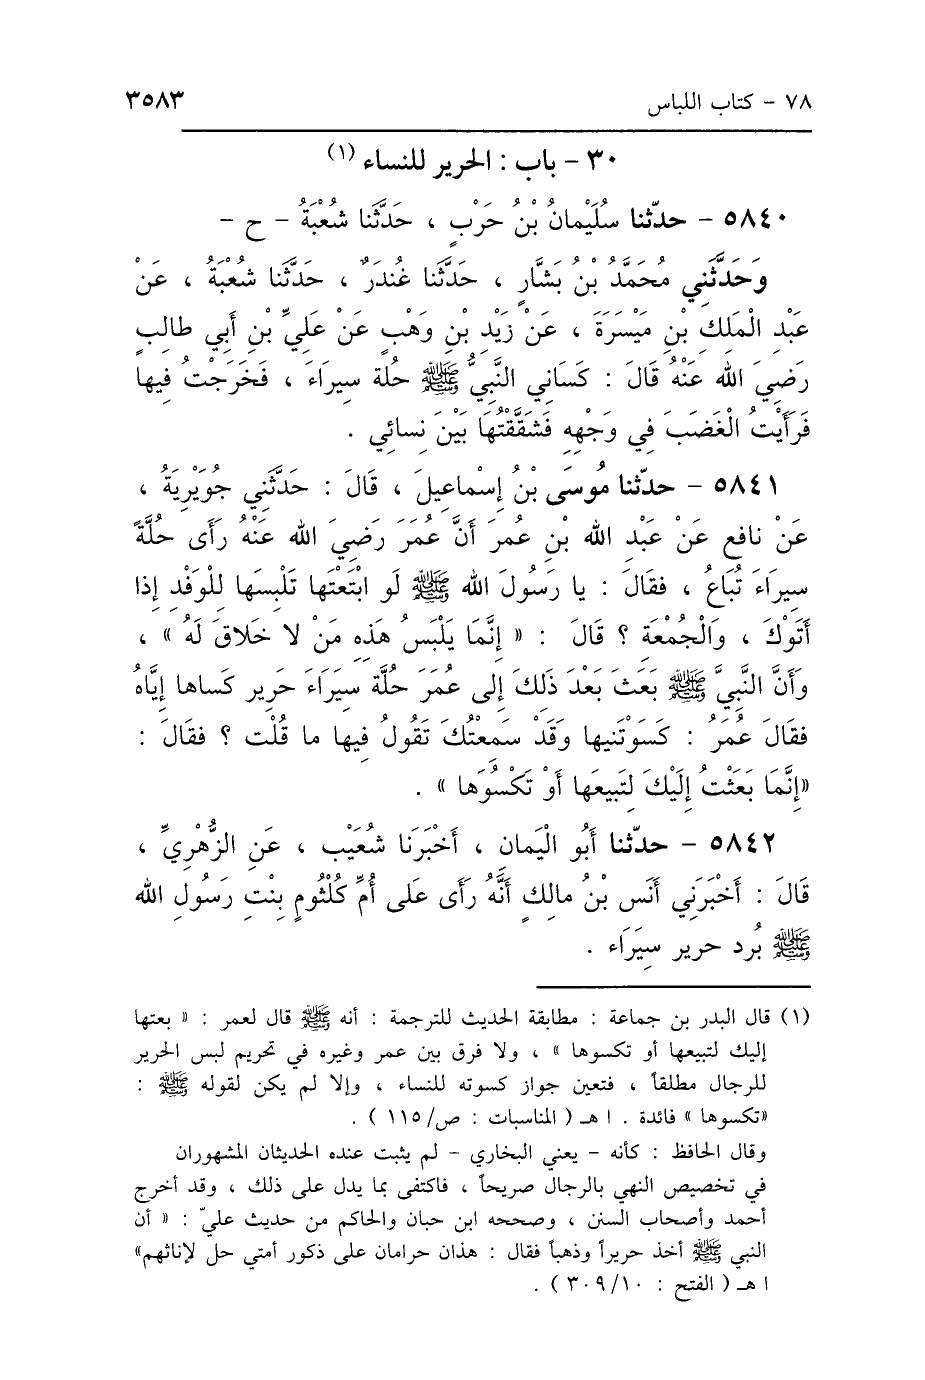 ٧٨ - كتاب اللباس ٣٥٨٣
٣٠ - باب : الحرير للنساء (١)
٥٨٤٠ - حدّثنا سُلَيْمانُ بْنُ حَرْبٍ ، حَدَّثَنا شُعْبَةُ - ح -
وَحَدَّثَنِي مُحَمَّدُ بْنُ بَشَّارٍ ، حَدَّثَنا غُندَرٌ ، حَدَّثَنا شُعْبَةُ ، عَنْ
عَبْدِ الْمَلِكِ بْنِ مَيْسَرَةَ ، عَنْ زَيْدِ بْنِ وَهْبٍ عَنْ عَلِيِّ بْنِ أَبي طالِبٍ
رَضِيَ الله عَنْهُ قَالَ : كَسَاني النَّبِيُّ ﷺ حلَّة سيرَاءَ ، فَخَرَجْتُ فِيها
فَرَأَيْتُ الْغَضَبَ فِي وَجْهِهِ فَشَقَّقْتُهَا بَيْنَ نِسائي .
٥٨٤١ - حدّثنا مُوسَى بْنُ إسْماعِيلَ ، قَالَ : حَدَّثَنِي جُوَيْرِيَةُ ،
عَنْ نافِعٍ عَنْ عَبْدِ الله بْنِ عُمَرَ أَنَّ عُمَرَ رَضِيَ الله عَنْهُ رَأَى حلَّةً
سيرَاءَ تُبَاعُ ، فقَالَ : يا رَسُولَ الله ﷺ لَو ابْتَعْتَها تَلْبسَها لِلْوَفْدِ إذا
أَتَوْكَ ، وَالْجُمْعَةِ ؟ قَالَ : « إنَّمَا يَلْبَسُ هَذِهِ مَنْ لا خَلاقَ لَهُ » ،
وَأَنَّ النَّبِيَّ ﷺ بَعَثَ بَعْدَ ذَلِكَ إلى عُمَرَ حلَّة سِيَرَاءَ حَرِير كَساها إيَّاهُ
فقَالَ عُمَرُ : كَسَوْتَنِيها وَقَدْ سَمِعْتُكَ تَقُولُ فِيها ما قُلْت ؟ فقَالَ :
«إنَّمَا بَعَثْتُ إلَيْكَ لِتَبيعَها أَوْ تَكْسُوَها » .
٥٨٤٢ - حدّثنا أَبُو الْيَمان ، أَخْبَرَنا شُعَيْب ، عَنِ الزُّهْرِيِّ ،
قَالَ : أَخْبَرَنِي أَنَس بْنُ مالِكٍ أَنَّهُ رَأَى عَلى أُمِّ كُلْثُومٍ بِنْتِ رَسُولِ الله
ﷺ بُرد حرير سِيَرَاء .
(١) قال البدر بن جماعة : مطابقة الحديث للترجمة : أنه ﷺ قال لعمر : « بعتها
إليك لتبيعها أو تكسوها » ، ولا فرق بين عمر وغيره في تحريم لبس الحرير
للرجال مطلقاً ، فتعين جواز كسوته للنساء ، وإلا لم يكن لقوله ﷺ :
«تكسوها » فائدة . ا هـ ( المناسبات : ص/١١٥ ) .
وقال الحافظ : كأنه - يعني البخاري - لم يثبت عنده الحديثان المشهوران
في تخصيص النهي بالرجال صريحاً ، فاكتفى بما يدل على ذلك ، وقد أخرج
أحمد وأصحاب السنن ، وصححه ابن حبان والحاكم من حديث عليّ : « أن
النبي ﷺ أخذ حريراً وذهباً فقال : هذان حرامان على ذكور أمتي حل لإناثهم»
ا هـ ( الفتح : ٣٠٩/١٠ ) .